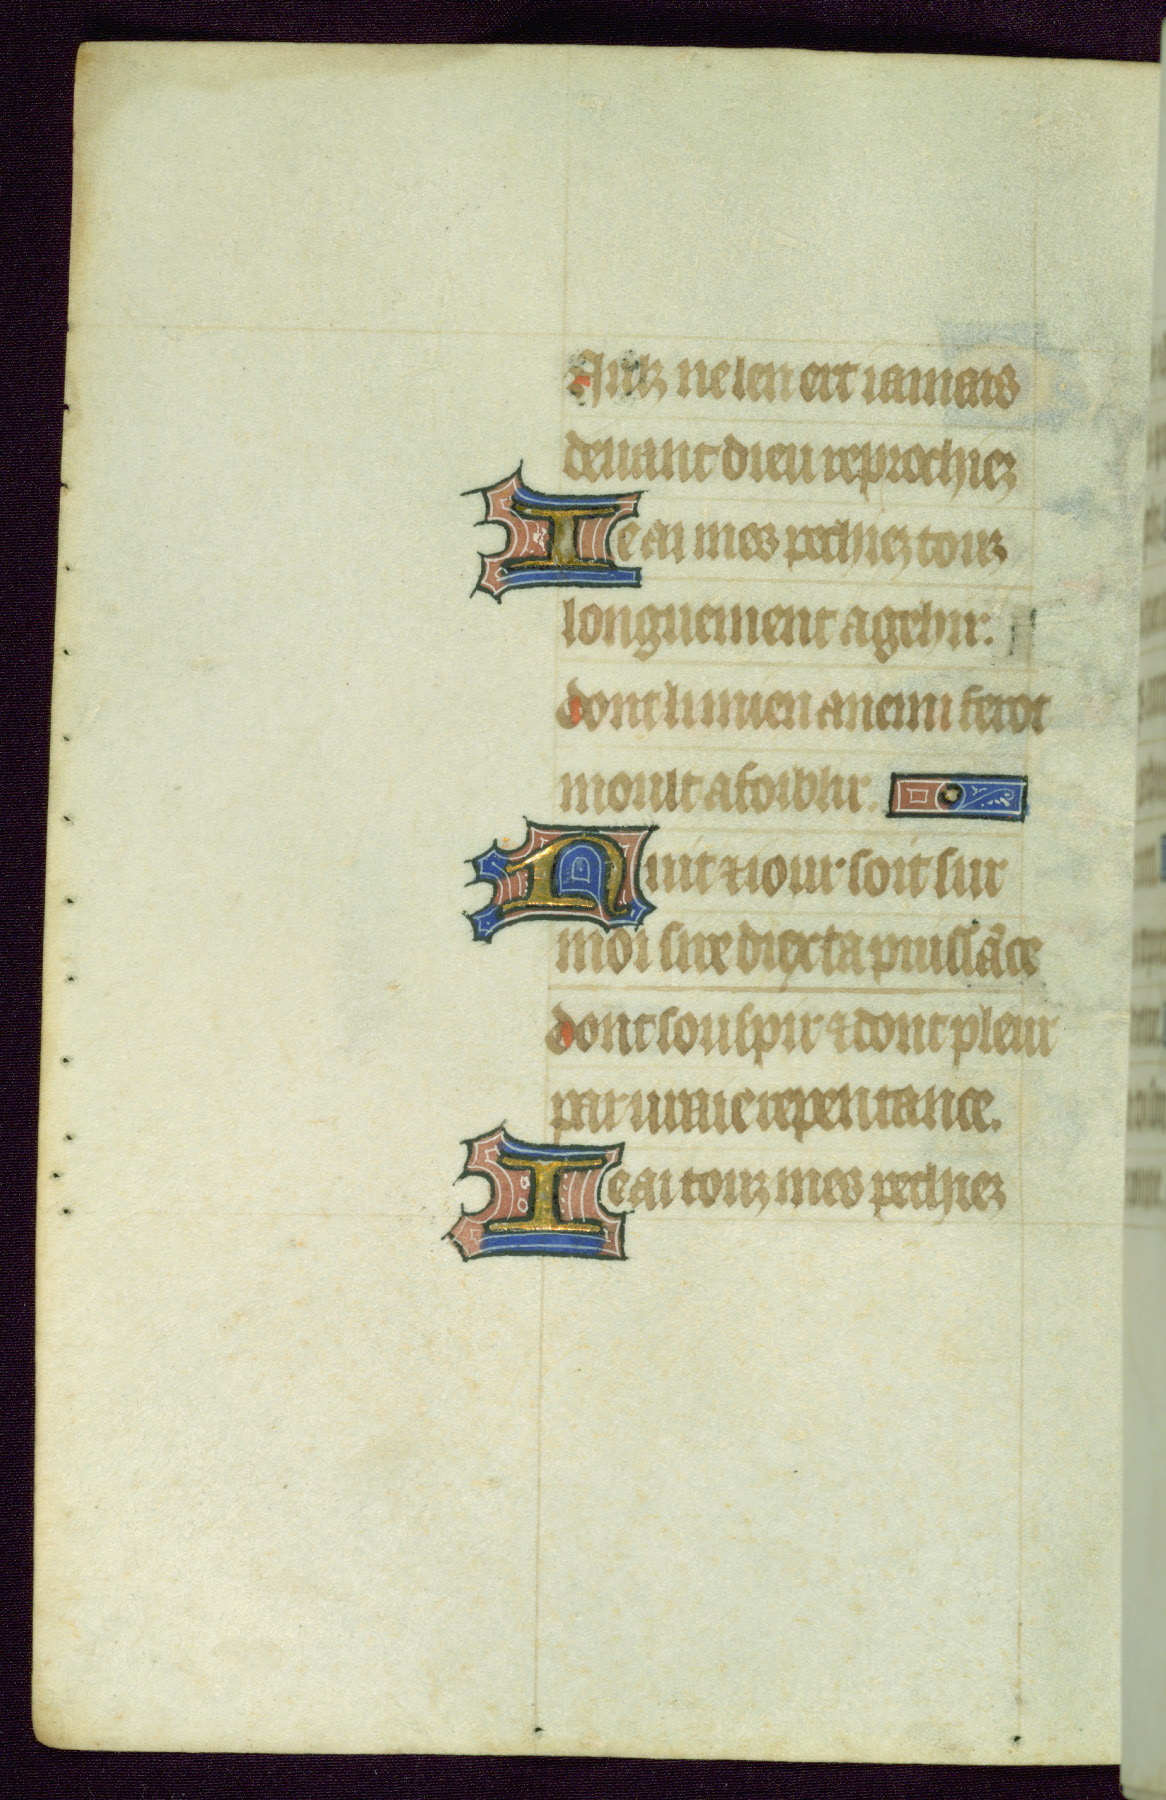 Nulz ne len ert iamais
deuant dieu reprochiez
Ie ai mes pechiez touz
longuement a gehir.
dont li mien anemi seront
moult afoiblir.
Nuit & iour soit sur
moi sire diex ta puissāce
dont souspir & dont pleur
par uraie repentance.
Ie ai touz mes pechiez